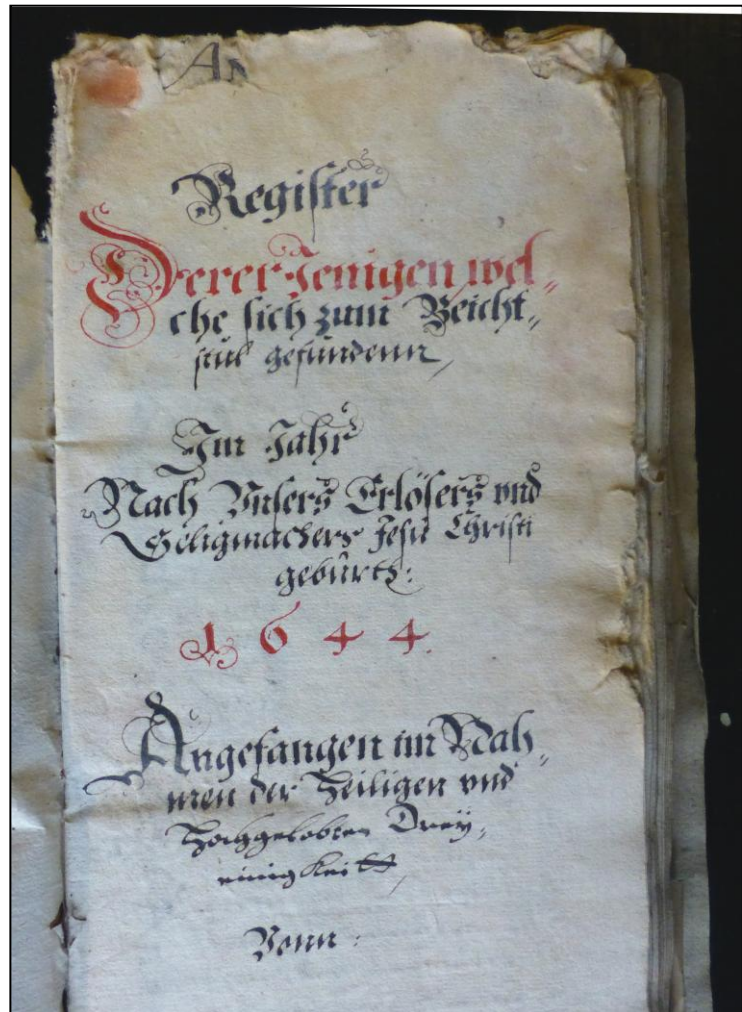 AN
Register
Derer Jenigen, wel„
che sich zum Beicht„
stul gefundenn,
Im Jahr
Nach Vnsers Erlösers vnd
Seligmachers Jesu Christi
gebürth:
1644.
Angefangen im Nah„
men der Heiligen vnd
Hochgelobten Drey„
einigkeitt,